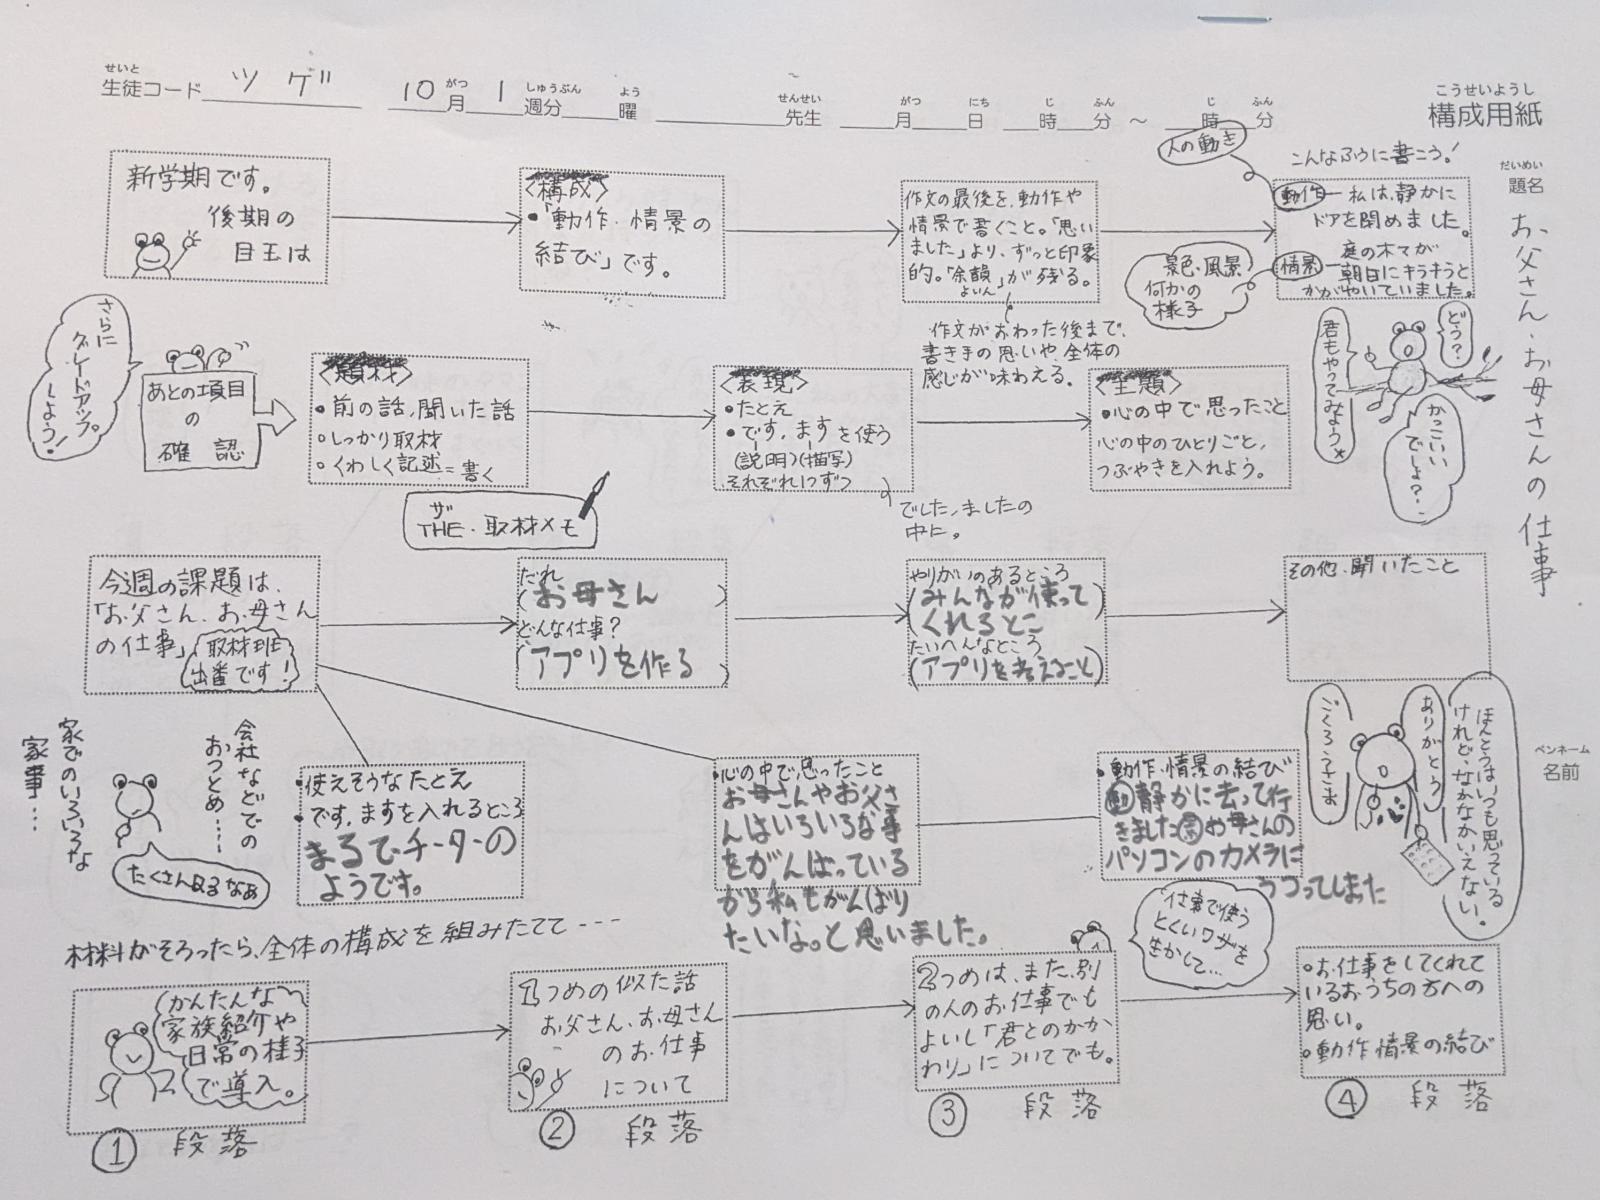 せいと
生徒コード ツゲ 10月 1週分 曜 先生 月 日 時 分 ～ 時 分
がつ しゅうぶん よう せんせい がつ にち じ ふん じ ふん
こうせいようし
構成用紙
だいめい
題名
お父さん・お母さんの仕事
ペンネーム
名前
新学期です。
後期の
目玉は
〈構成〉
・「動作・情景の
結び」です。
作文の最後を、動作や
情景で書くこと。「思い
ました」より、ずっと印象
的。「余韻」が残る。
よいん
作文がおわった後まで、
書き手の思いや、全体の
感じが味わえる。
人の動き
こんなふうに書こう!
動作―私は、静かに
ドアを閉めました。
情景―庭の木々が
朝日にキラキラと
かがやいていました。
景色・風景
何かの
様子
どう?
君もやってみよう
かっこいい
でしょ?
さらに
グレードアップ
しよう!
あとの項目
の
確認
〈題材〉
・前の話、聞いた話
○しっかり取材
○くわしく記述=書く
ザ
THE・取材メモ
〈表現〉
・たとえ
・です。ますを使う
(説明)(描写)
それぞれ1つずつ
でした、ましたの
中に。
〈主題〉
・心の中で思ったこと
心の中のひとりごと、
つぶやきを入れよう。
今週の課題は、
「お父さん、お母さん
の仕事」
取材班
出番です!
だれ
(お母さん)
どんな仕事?
(アプリを作る
やりがいのあるところ
(みんなが使って
くれるとこ
たいへんなところ
(アプリを考えること)
その他、聞いたこと
ほんとうはいつも思っている
けれど、なかなかいえない。
ありがとう
ごくろうさま
会社などでの
おつとめ……
家でのいろいろな
家事…
たくさんあるなぁ
・使えそうなたとえ
・です、ますを入れるところ
まるでチーターの
ようです。
・心の中で思ったこと
お母さんやお父さ
んはいろいろな事
をがんばっている
から私もがんばり
たいな。と思いました。
・動作・情景の結び
動静かに去って行
きました景お母さんの
パソコンのカメラに
うつってしまった
材料がそろったら、全体の構成を組みたてて----
かんたんな
家族紹介や
日常の様子
で導入。
① 段落
1つめの似た話
お父さん、お母さん
のお仕事
について
② 段落
2つめは、また、別
の人のお仕事でも
よいし「君とのかか
わり」についてでも。
③ 段落
仕事で使う
とくいワザを
生かして…
○お仕事をしてくれて
いるおうちの方への
思い。
○動作情景の結び
④ 段落